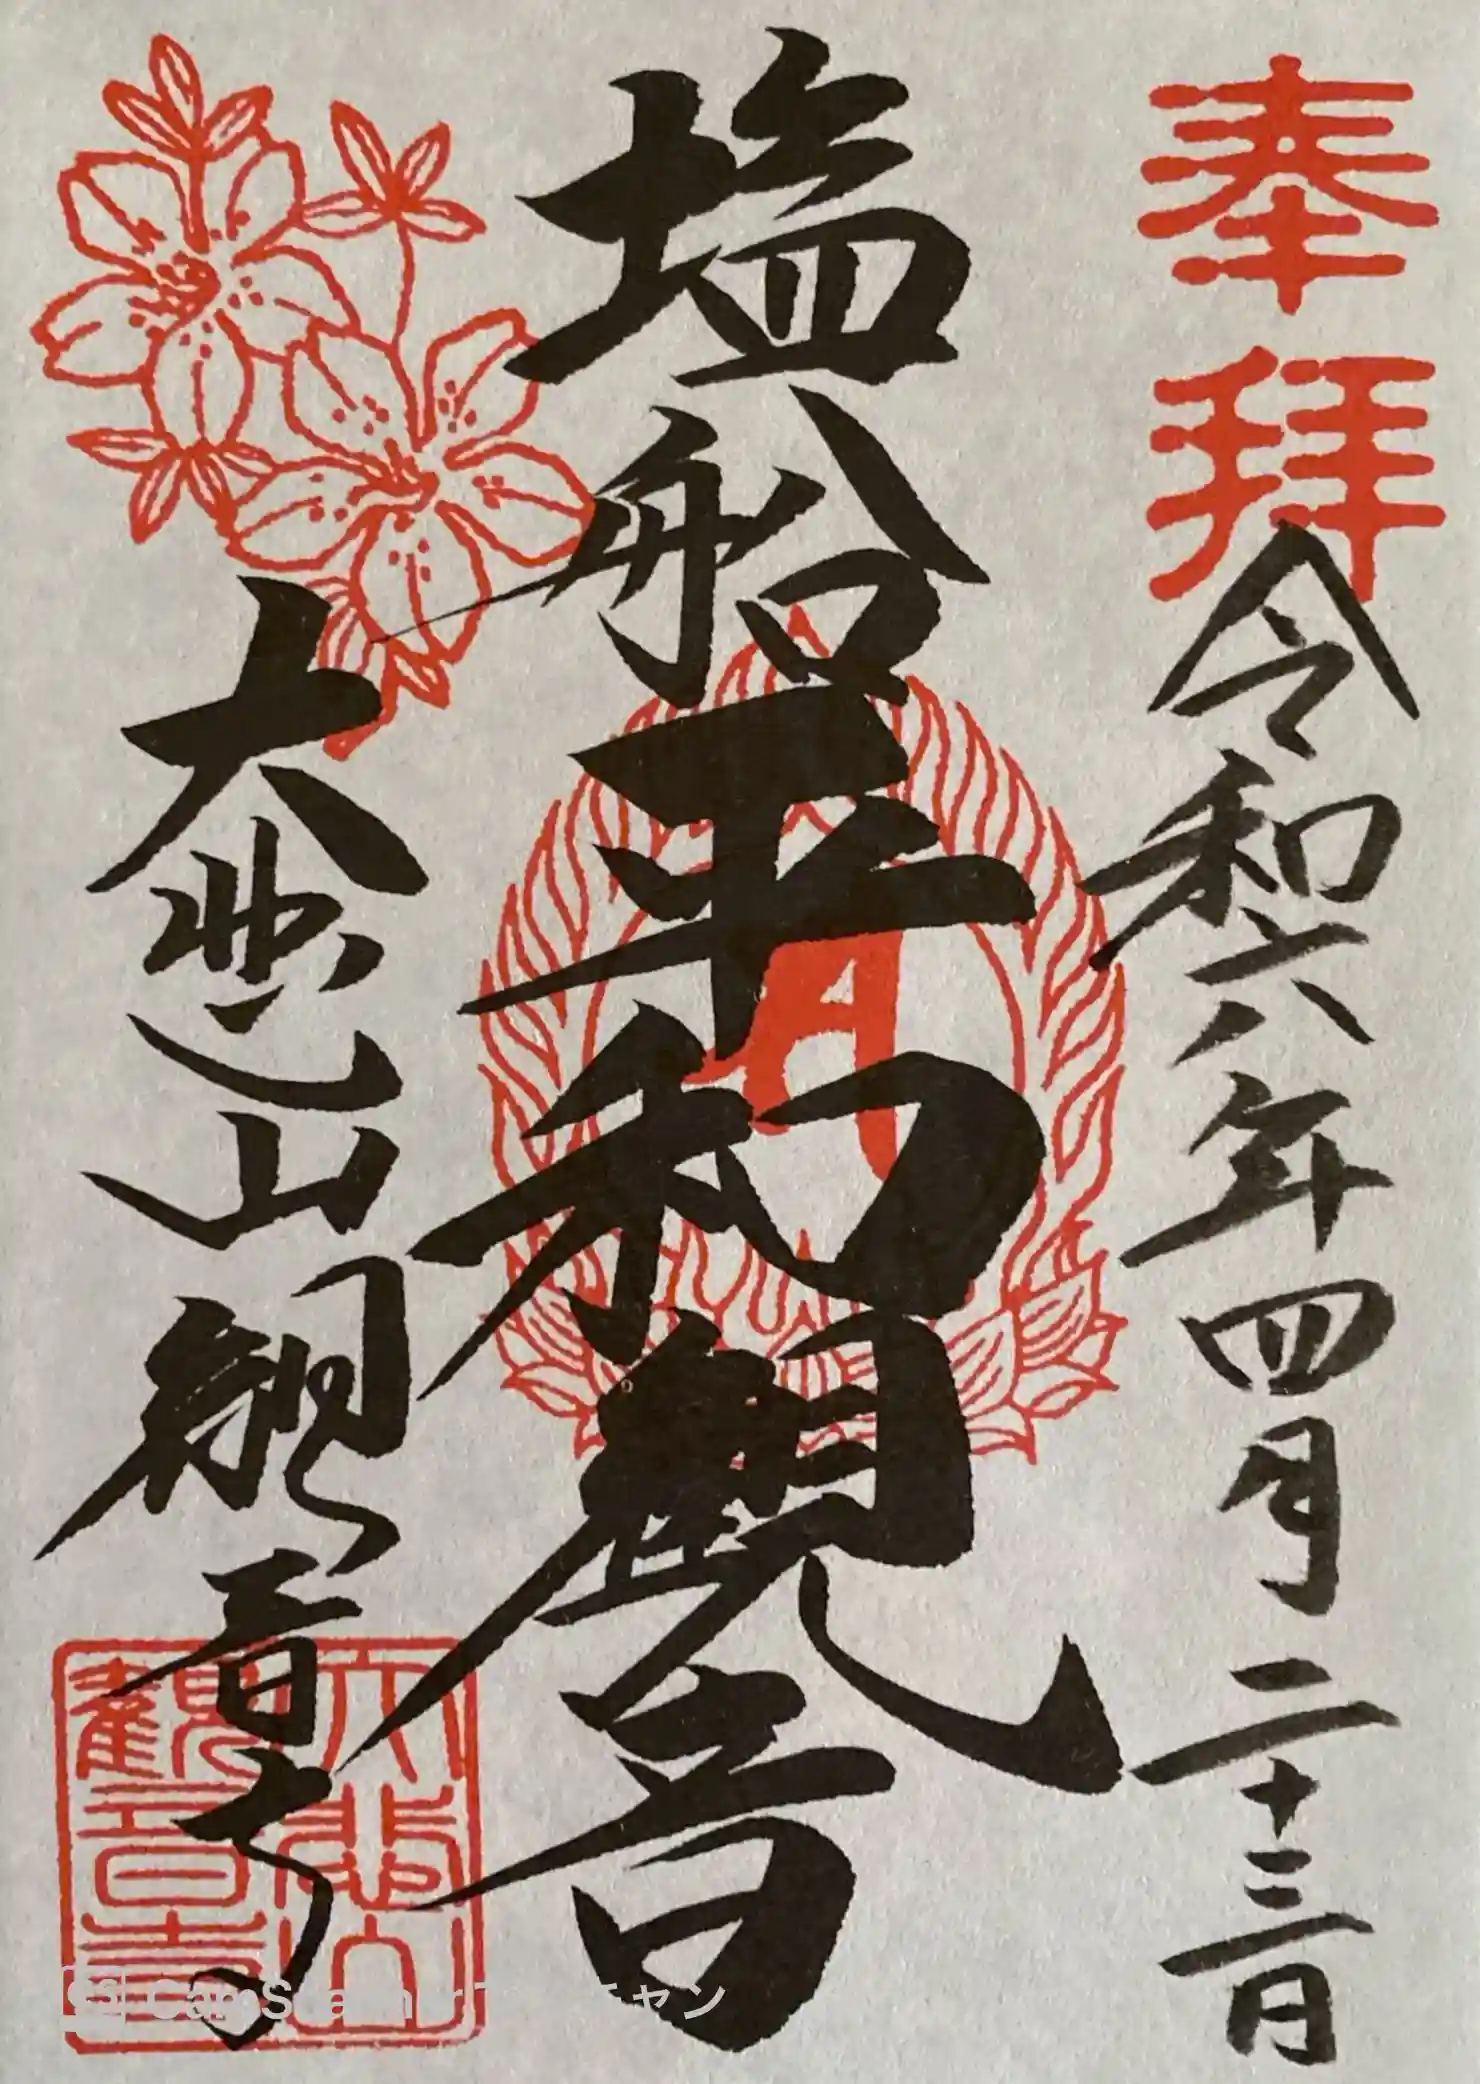 奉拝
令和六年四月二十三日
塩船平和観音
大悲山観音寺
大悲山
観音寺
CamScanner